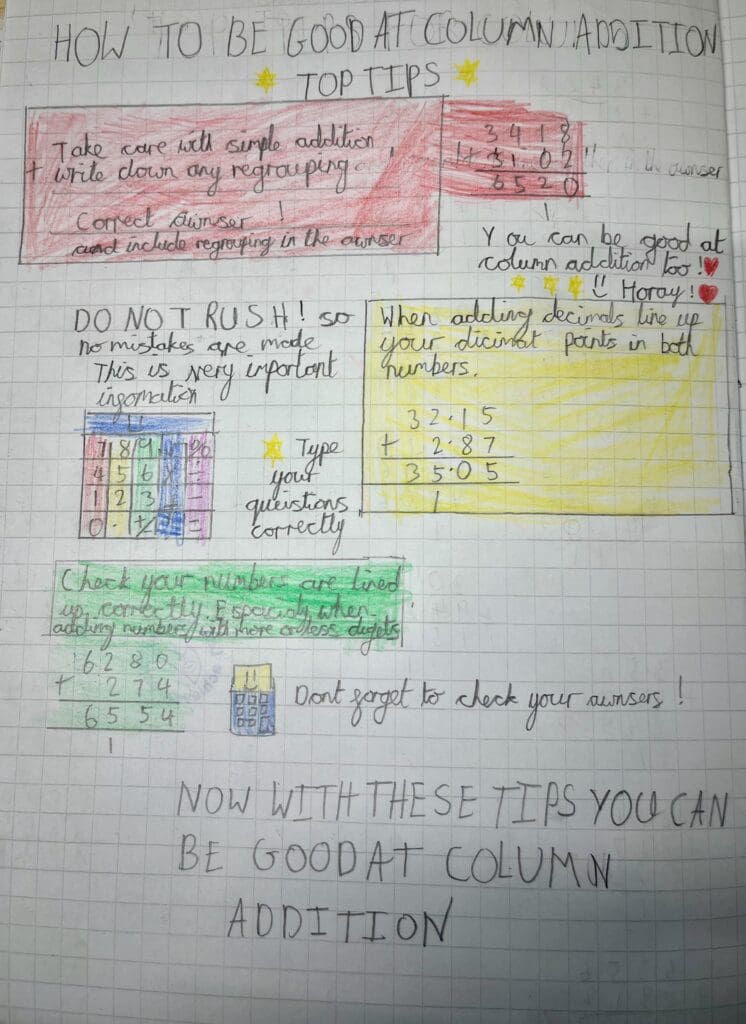 HOW TO BE GOOD AT COLUMN ADDITION
TOP TIPS
Take care with simple addition,
+ write down any regrouping
Correct awnser !
and include regrouping in the awnser
3 4 1 8
+ 3 1 0 2
6 5 2 0
1
in the awnser
You can be good at
column addition too!
Horay!
DO NOT RUSH! so
no mistakes are made
This is very important
ingomation
When adding decimals line up
your dicimat points in both
numbers.
3 2 . 1 5
+ 2 . 8 7
3 5 . 0 5
1
7 8 9 %
4 5 6 x ÷
1 2 3 -
0 . =
Type
your
queistions
correctly
Check your numbers are lined
up correctly. Espacialy when
adding numbers with more or less digets
6 2 8 0
+ 2 7 4
6 5 5 4
1
Dont forget to check your awnsers !
NOW WITH THESE TIPS YOU CAN
BE GOOD AT COLUMN
ADDITION